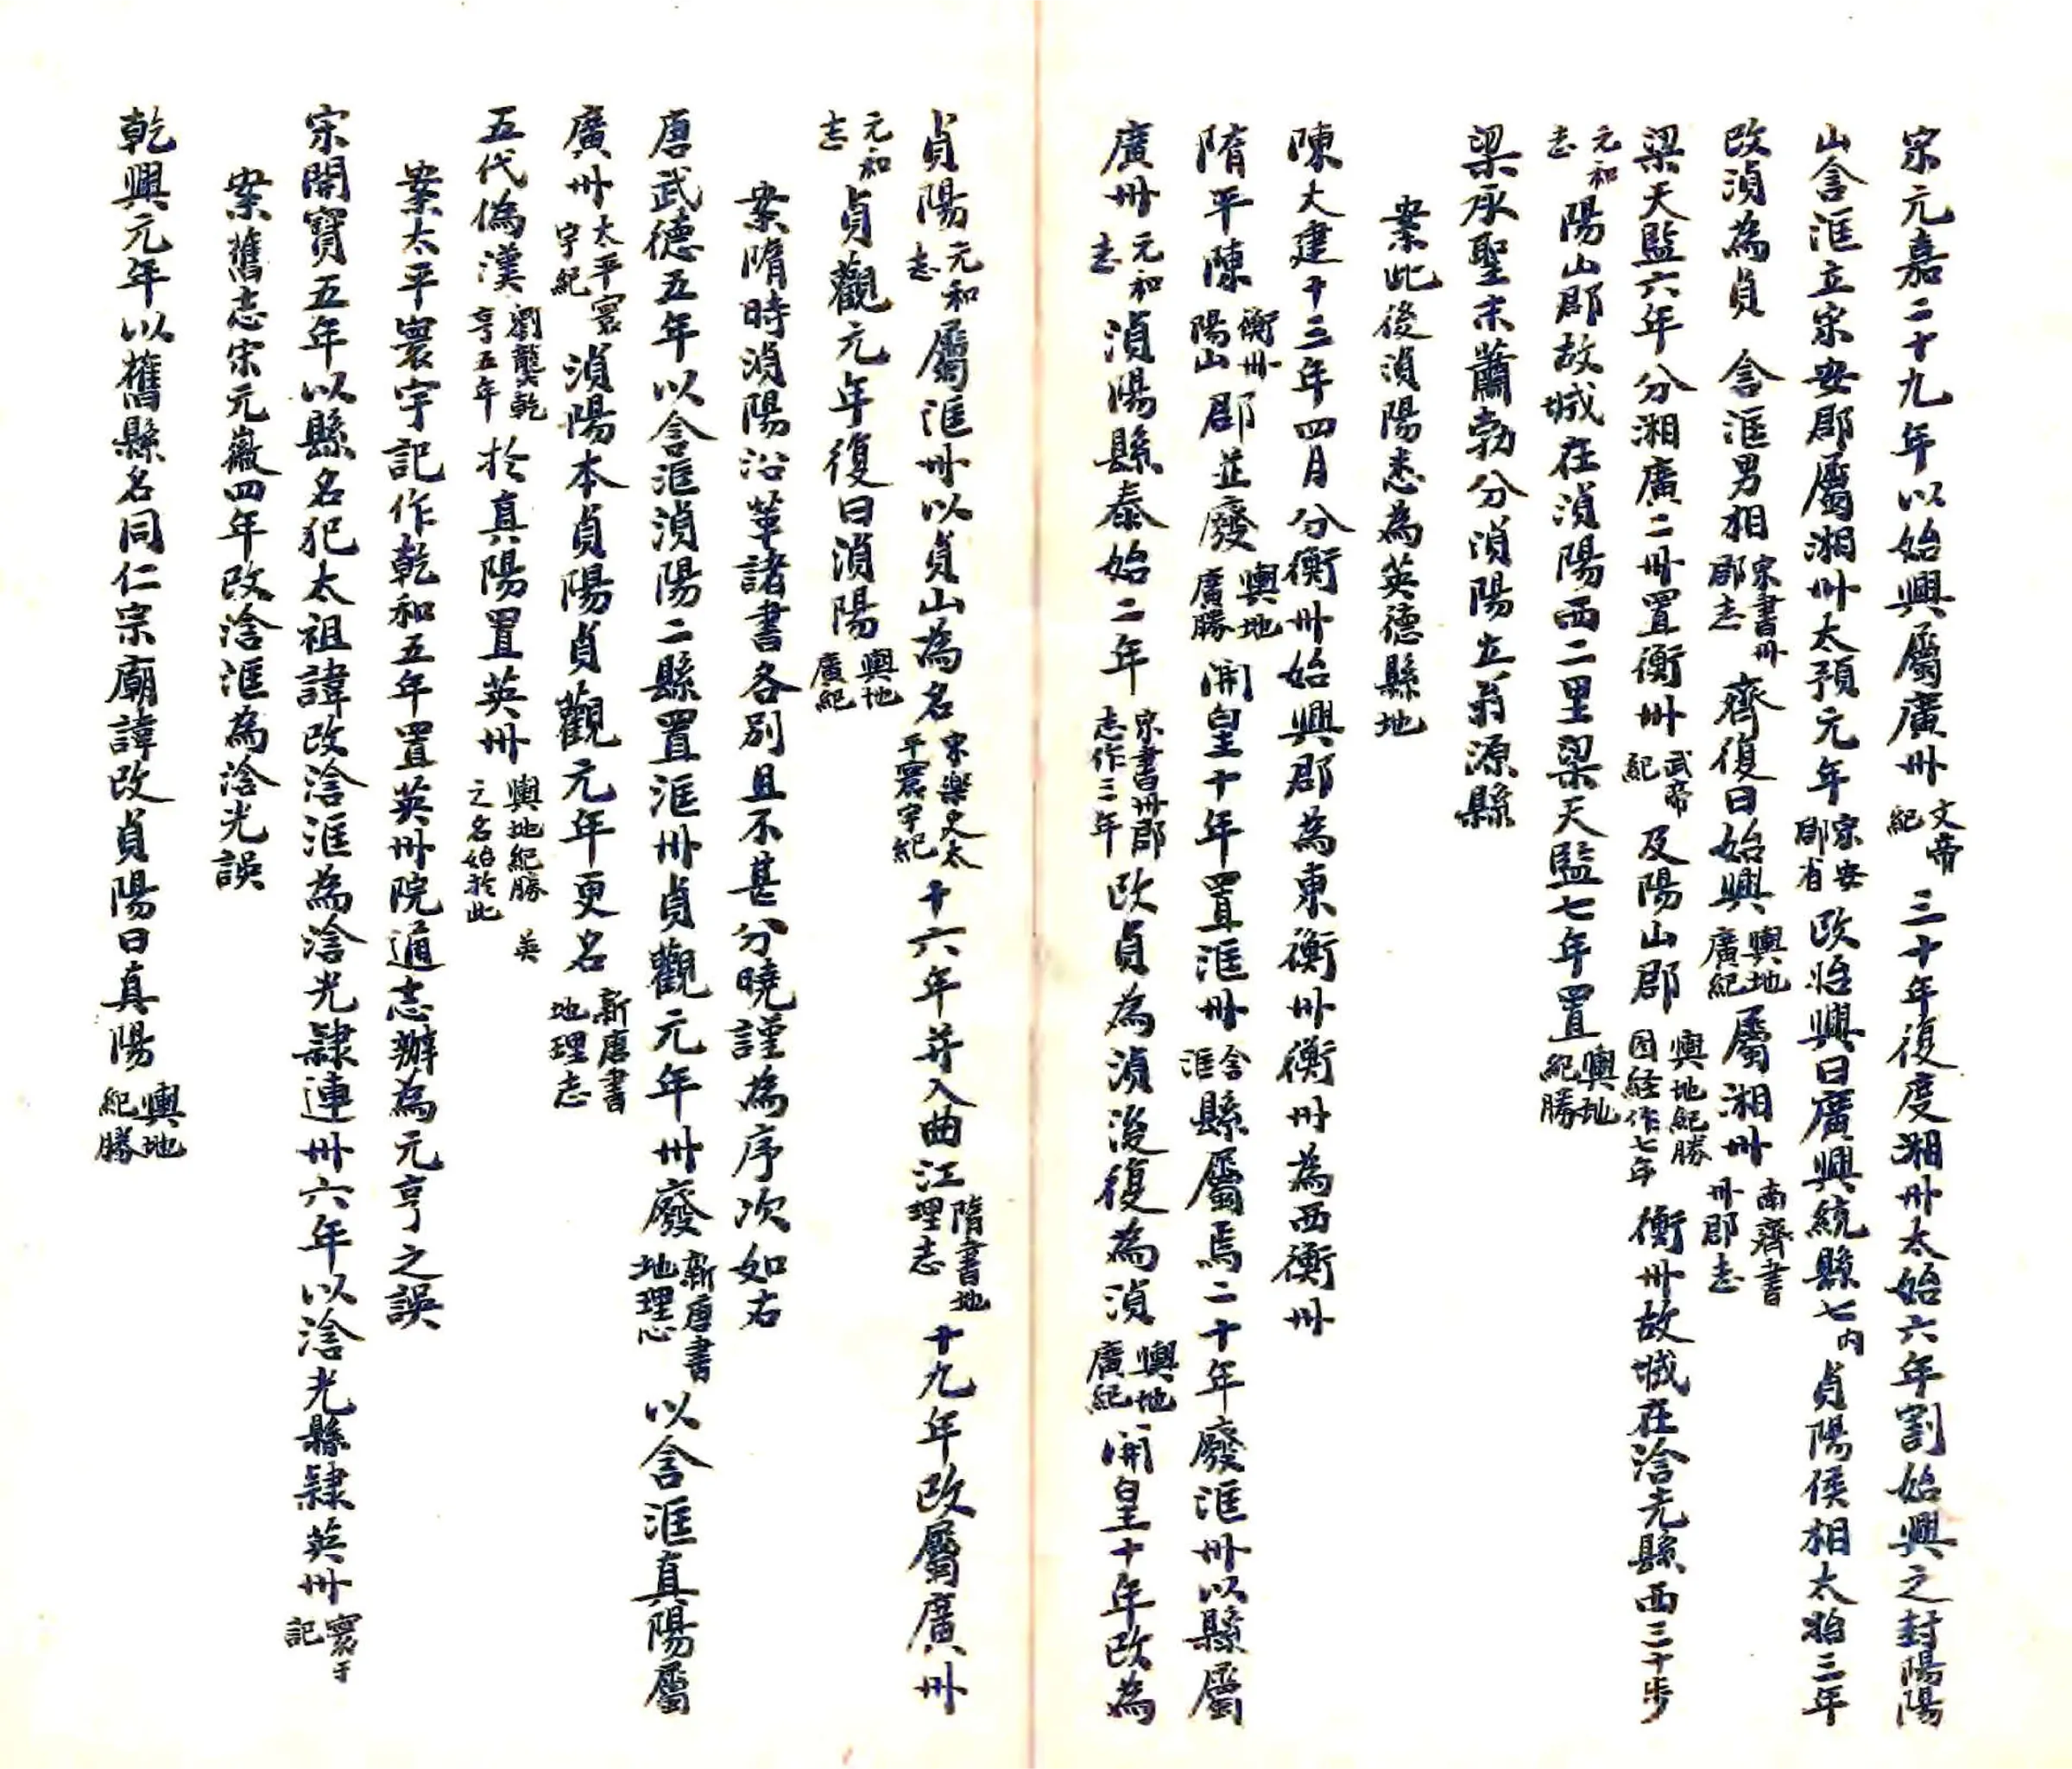 宗元嘉二十九年以始興屬廣州文帝紀三十年復度湘州太始六年割始興之封陽陽
山含洭立宋安郡屬湘州太預元年宋安郡省改始興曰廣興統縣七內貞陽侯相太始三年
改湞為貞 含洭男相宋書州郡志齊復曰始興輿地廣紀屬湘州南齊書州郡志
梁天監六年分湘廣二州置衡州武帝紀及陽山郡輿地紀勝因経作七年衡州故城在浛光縣西三十步
元和志陽山郡故城在湞陽西二里梁天監七年置輿地紀勝
梁承聖末蕭勃分湞陽立翁源縣
案此後湞陽悉為英德縣地
陳大建十三年四月分衡州始興郡為東衡州衡州為西衡州
隋平陳衡州陽山郡並廢輿地廣勝開皇十年置洭州含洭縣屬焉二十年廢洭州以縣屬
廣州元和志湞陽縣泰始二年宋書州郡志作三年改貞為湞後復為湞輿地廣紀開皇十年改為
貞陽元和志屬洭州以貞山為名宋樂史太平寰宇紀十六年并入曲江隋書地理志十九年改屬廣州
元和志貞觀元年復曰湞陽輿地廣紀
案隋時湞陽沿革諸書各別且不甚分曉謹為序次如右
唐武德五年以含洭湞陽二縣置洭州貞觀元年州廢新唐書地理志以含洭真陽屬
廣州太平寰宇紀湞陽本貞陽貞觀元年更名新唐書地理志
五代偽漢劉龑乾亨五年於真陽置英州輿地紀勝 英之名始於此
案太平寰宇記作乾和五年置英州院通志辦為元亨之誤
宋開寶五年以縣名犯太祖諱改浛洭為浛光隷連州六年以浛光縣隷英州寰宇記
案舊志宋元徽四年改浛洭為浛光誤
乾興元年以舊縣名同仁宗廟諱改貞陽曰真陽輿地紀勝